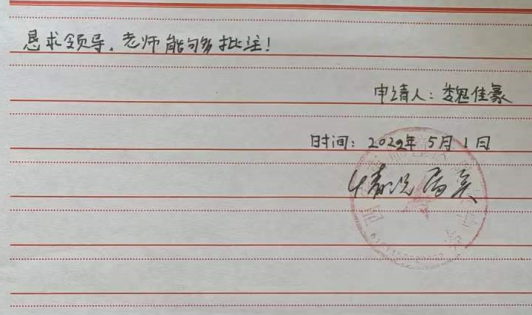 恳求领导、老师能够批准！
申请人：娄佳豪
时间：2022年5月1日
情况属实